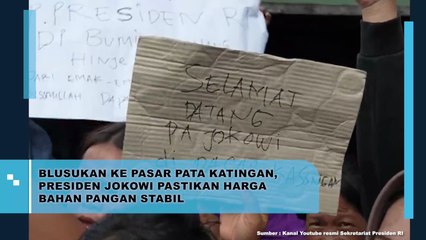 P.PRESIDEN R
DI BUMI
HINJE
SELAMAT
DATANG
PA JOKOWI
BLUSUKAN KE PASAR PATA KATINGAN,
PRESIDEN JOKOWI PASTIKAN HARGA
BAHAN PANGAN STABIL
Sumber : Kanal Youtube resmi Sekretariat Presiden RI